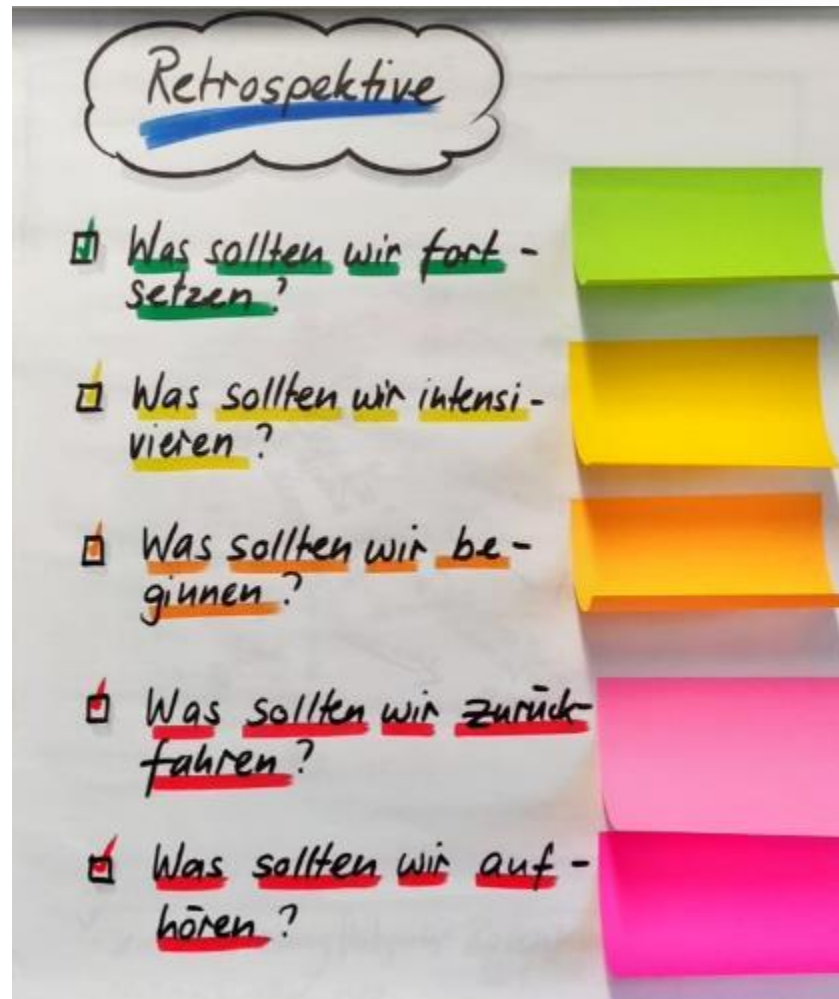 Retrospektive
Was sollten wir fort-
setzen?
Was sollten wir intensi-
vieren?
Was sollten wir be-
ginnen?
Was sollten wir zurück-
fahren?
Was sollten wir auf-
hören?